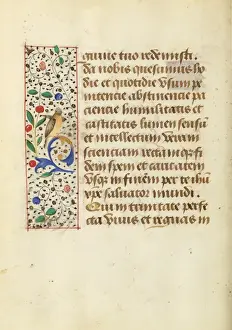 guine tuo redemisti.
Da nobis quesumus ho
die et quotidie usum pe
nitencie abstinencie pa
ciencie humilitatis et
castitatis lumen sensu
et intellectum veram
scienciam rectamque fi
dem spem et caritatem
usque in finem per te ihu xpe
salvator mundi.
Qui in trinitate perfe
cta vivis et regnas in